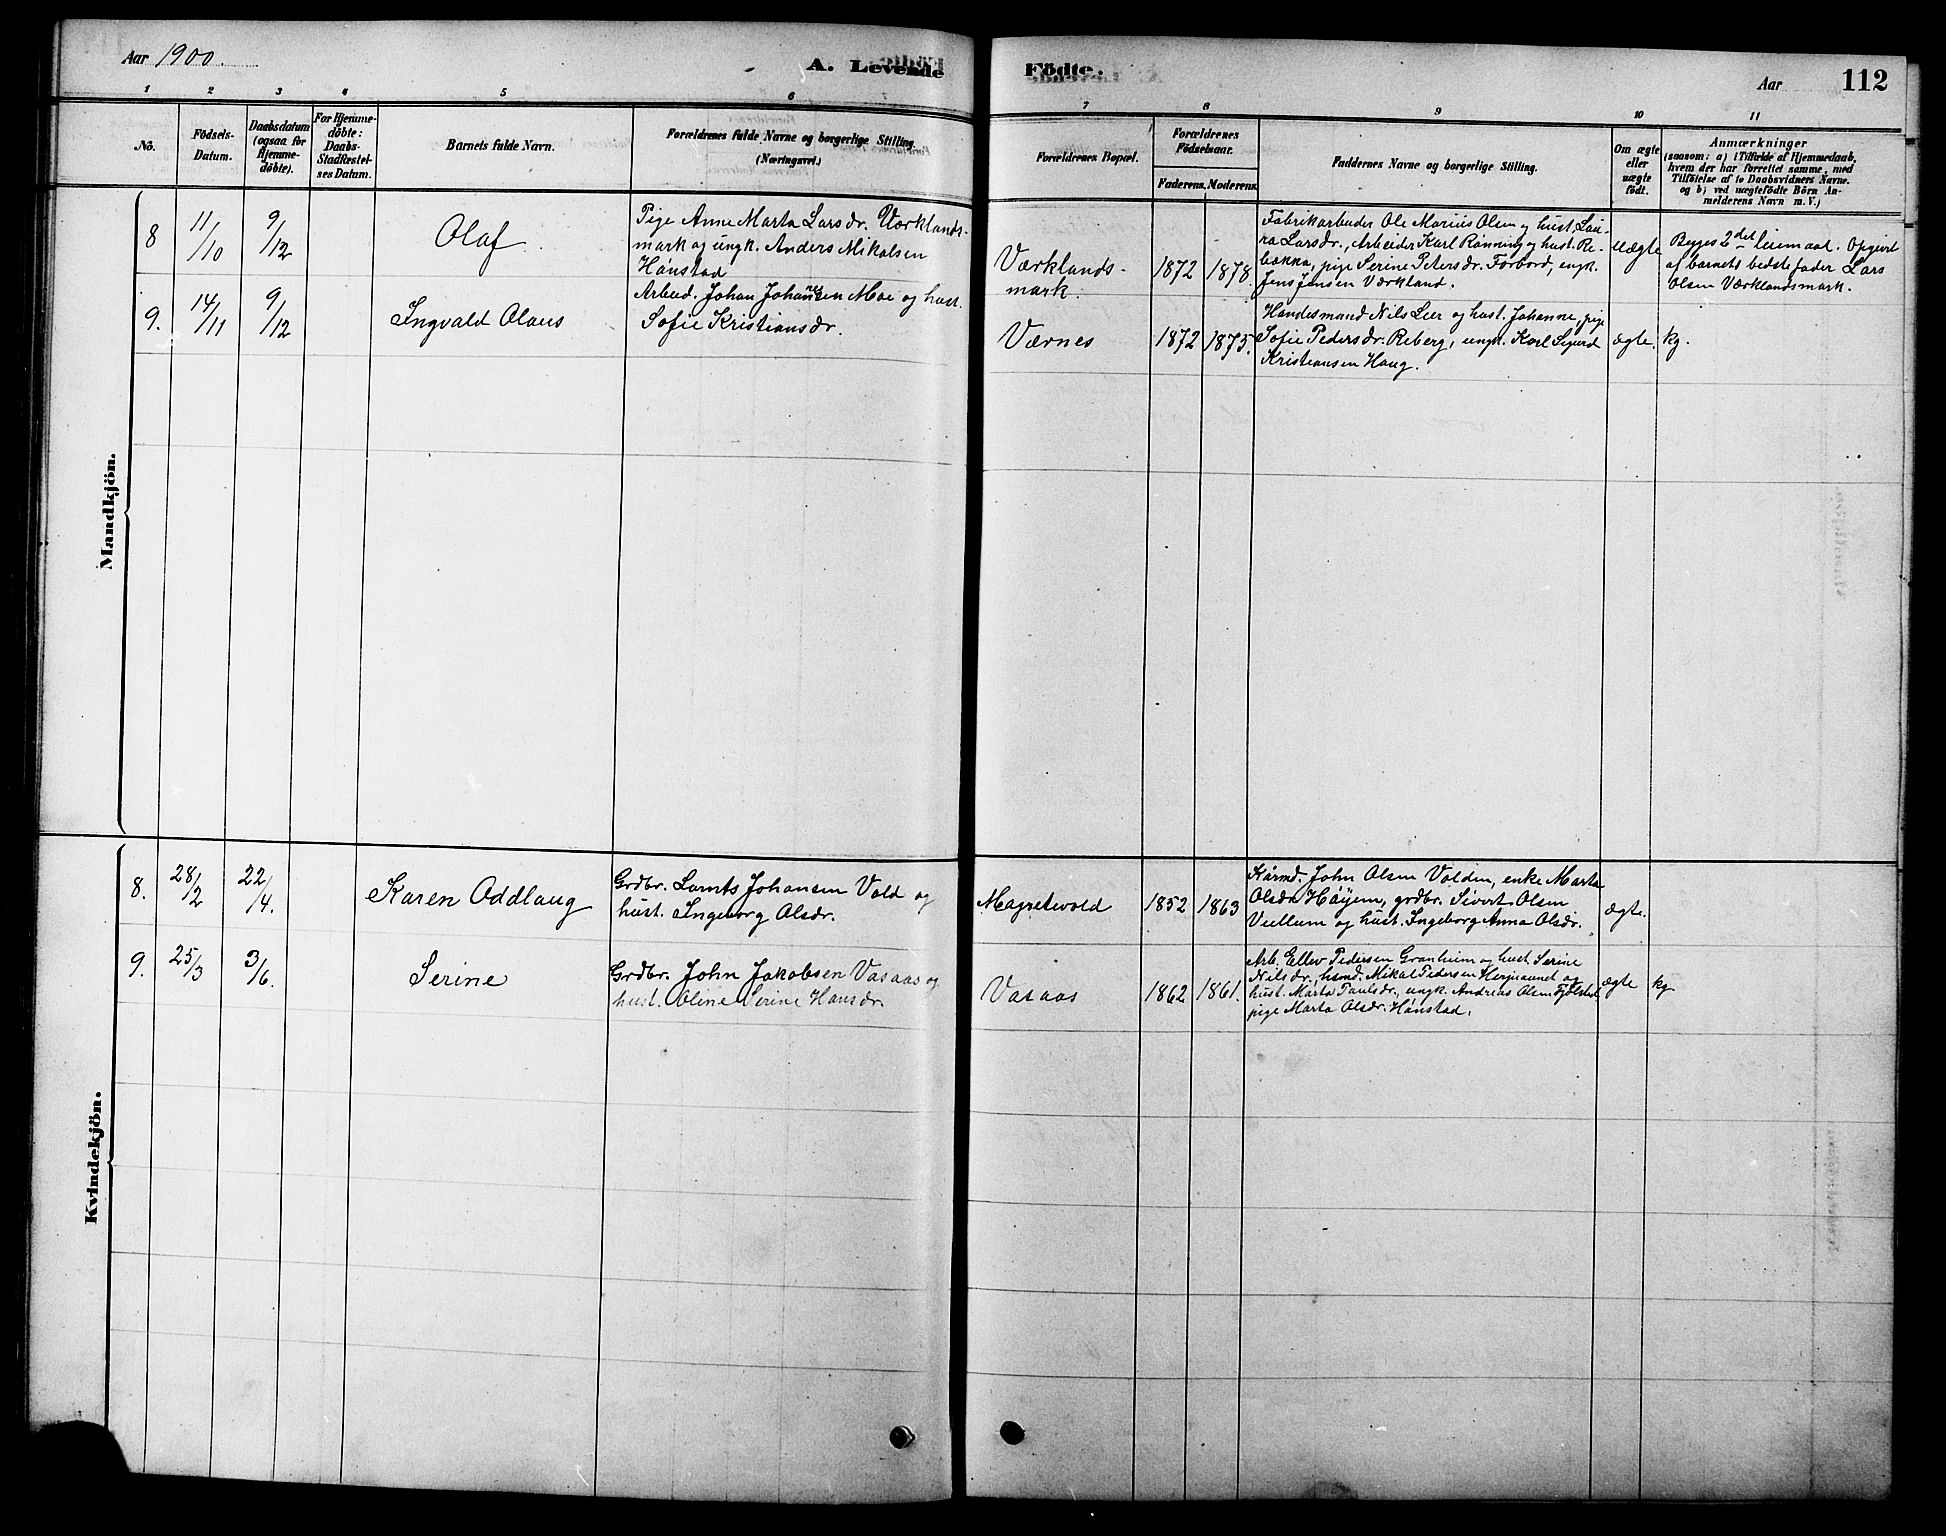 Aar 1900.
A. Levende
Födte.
Aar
112
1 2 3 4 5 6
7 8 9 10 11
No.
Födsels-
Datum.
Daabsdatum
(ogsaa for
Hjemme-
döbte).
For Hjemme-
döbte:
Daabs-
Stadfæstel-
ses Datum.
Barnets fulde Navn.
Forældrenes fulde Navne og borgerlige Stilling.
(Næringsvei.)
Forældrenes Bopæl.
Forældrenes
Födselsaar.
Faderens. Moderens.
Faddernes Navne og borgerlige Stilling.
Om ægte
eller
uægte
födt.
Anmærkninger
(saasom: a) i Tilfælde af Hjemmedaab,
hvem der har forrettet samme, med
Tilföielse af to Daabsvidners Navne.
og b) ved uægtefödte Börn An-
melderens Navn m. V.)
Mandkjön.
8
11/10
9/12
Olaf
Pige Anne Marta Larsdr. Værklands-
mark og ungk. Anders Mikalsen
Hånstad
Værklands-
mark.
1872
1878.
Fabrikarbeider Ole Marius Olsen og hust. Lau-
ra Larsdr., Arbeider Karl Rønning og hust. Re-
bekka, pige Serine Petersdr. Forbord, ungk.
Jens Jensen Værkland.
uægte
Begges 2det leiemaal. Opgivet
af barnets bedstefader Lars
Olsen Værklandsmark.
9.
14/11
9/12
Ingvald Olaus
Arbeid. Johan Johannesen Moe og hust.
Sofie Kristiansdr.
Værnes
1872
1875.
Handelsmand Nils Leer og hust. Johanne, pige
Sofie Pedersdr. Reberg, ungk. Karl Sigurd
Kristiansen Haug.
ægte.
kg.
Kvindekjön.
8.
28/2
22/4.
Karen Oddlaug
Grdbr. Lornts Johansen Vold og
hust. Ingeborg Olsdr.
Magretevold
1852
1863
Kårmd. John Olsen Volden, enke Marta
Olsdr. Höyem, grdbr. Sivert Olsen
Veellum og hust. Ingeborg Anna Olsdr.
ægte.
9.
25/3
3/6.
Serine
Grdbr. John Jakobsen Vasaas og
hust. Oline Serine Hansdr.
Vasaas
1862
1861.
Arb. Ellev Pedersen Granheim og hust. Serine
Nilsdr., hsmd. Mikal Pedersen og
hust. Marta Paulsdr., ungk. Andreas Olsen
pige Marta Olsdr. Hånstad.
ægte
kg